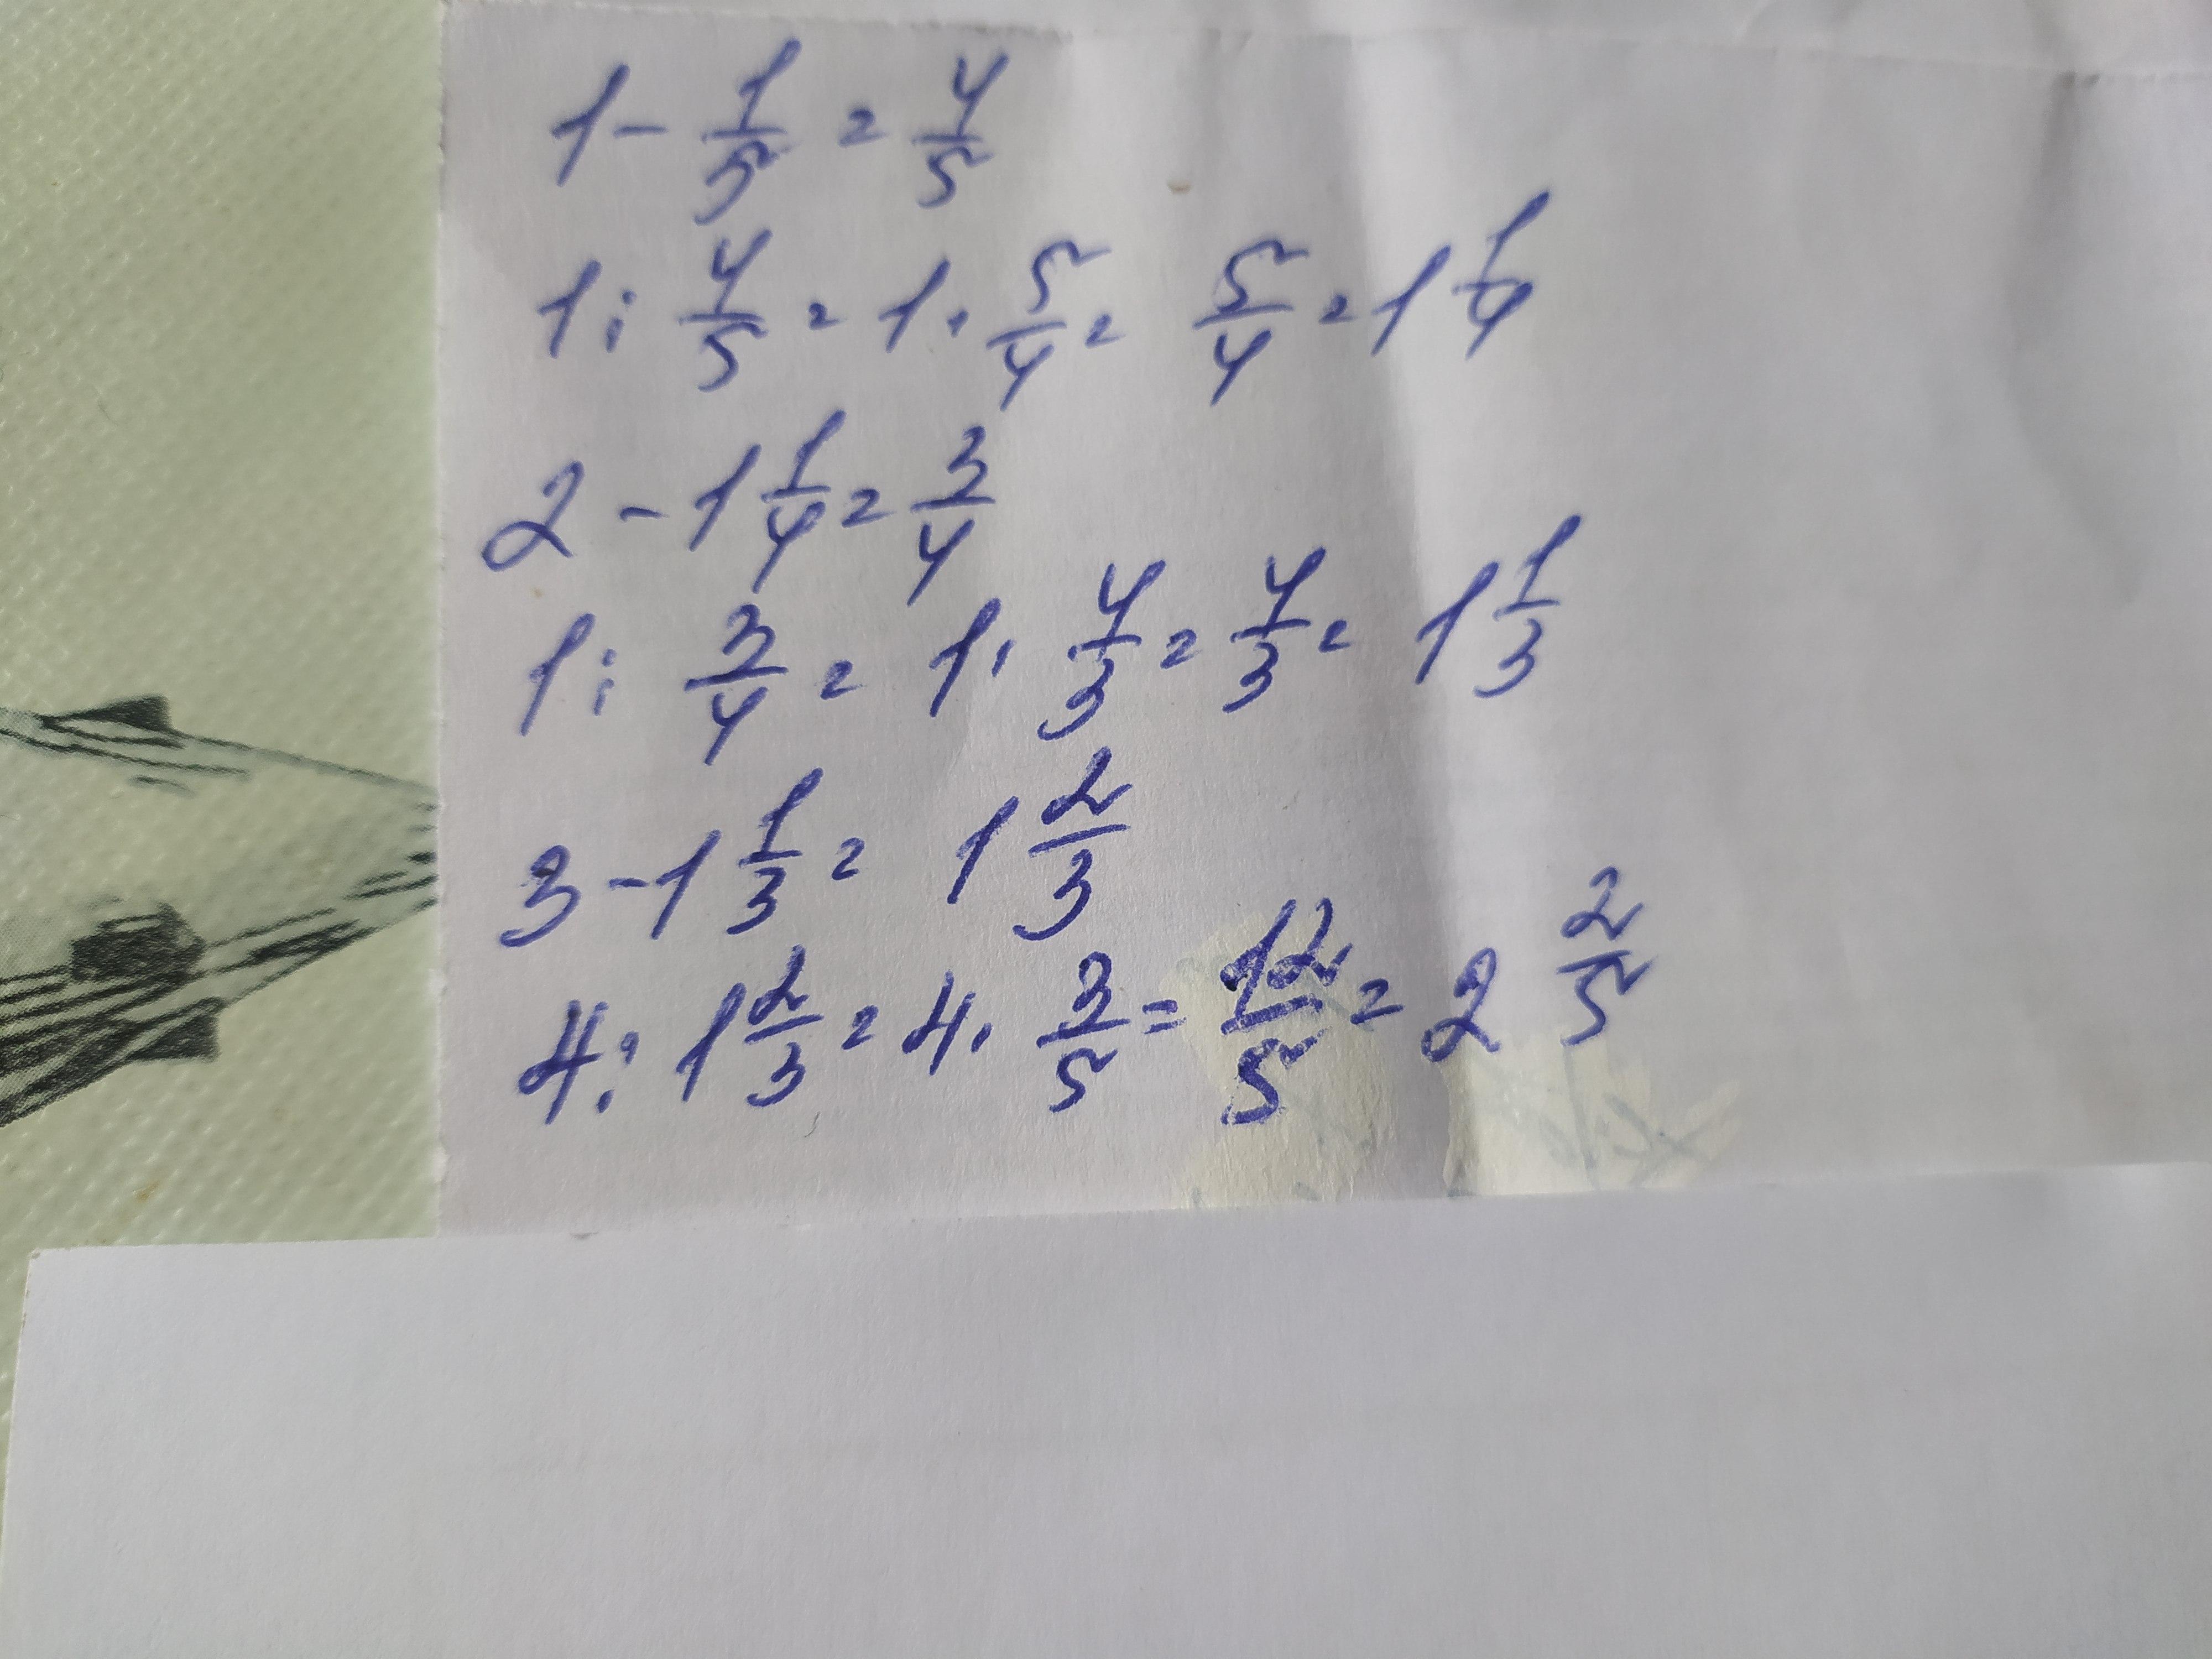 1 - 1/5 = 4/5
1 : 4/5 = 1 · 5/4 = 5/4 = 1 1/4
2 - 1 1/4 = 3/4
1 : 3/4 = 1 · 4/3 = 4/3 = 1 1/3
3 - 1 1/3 = 1 2/3
4 : 1 2/3 = 4 · 3/5 = 12/5 = 2 2/5